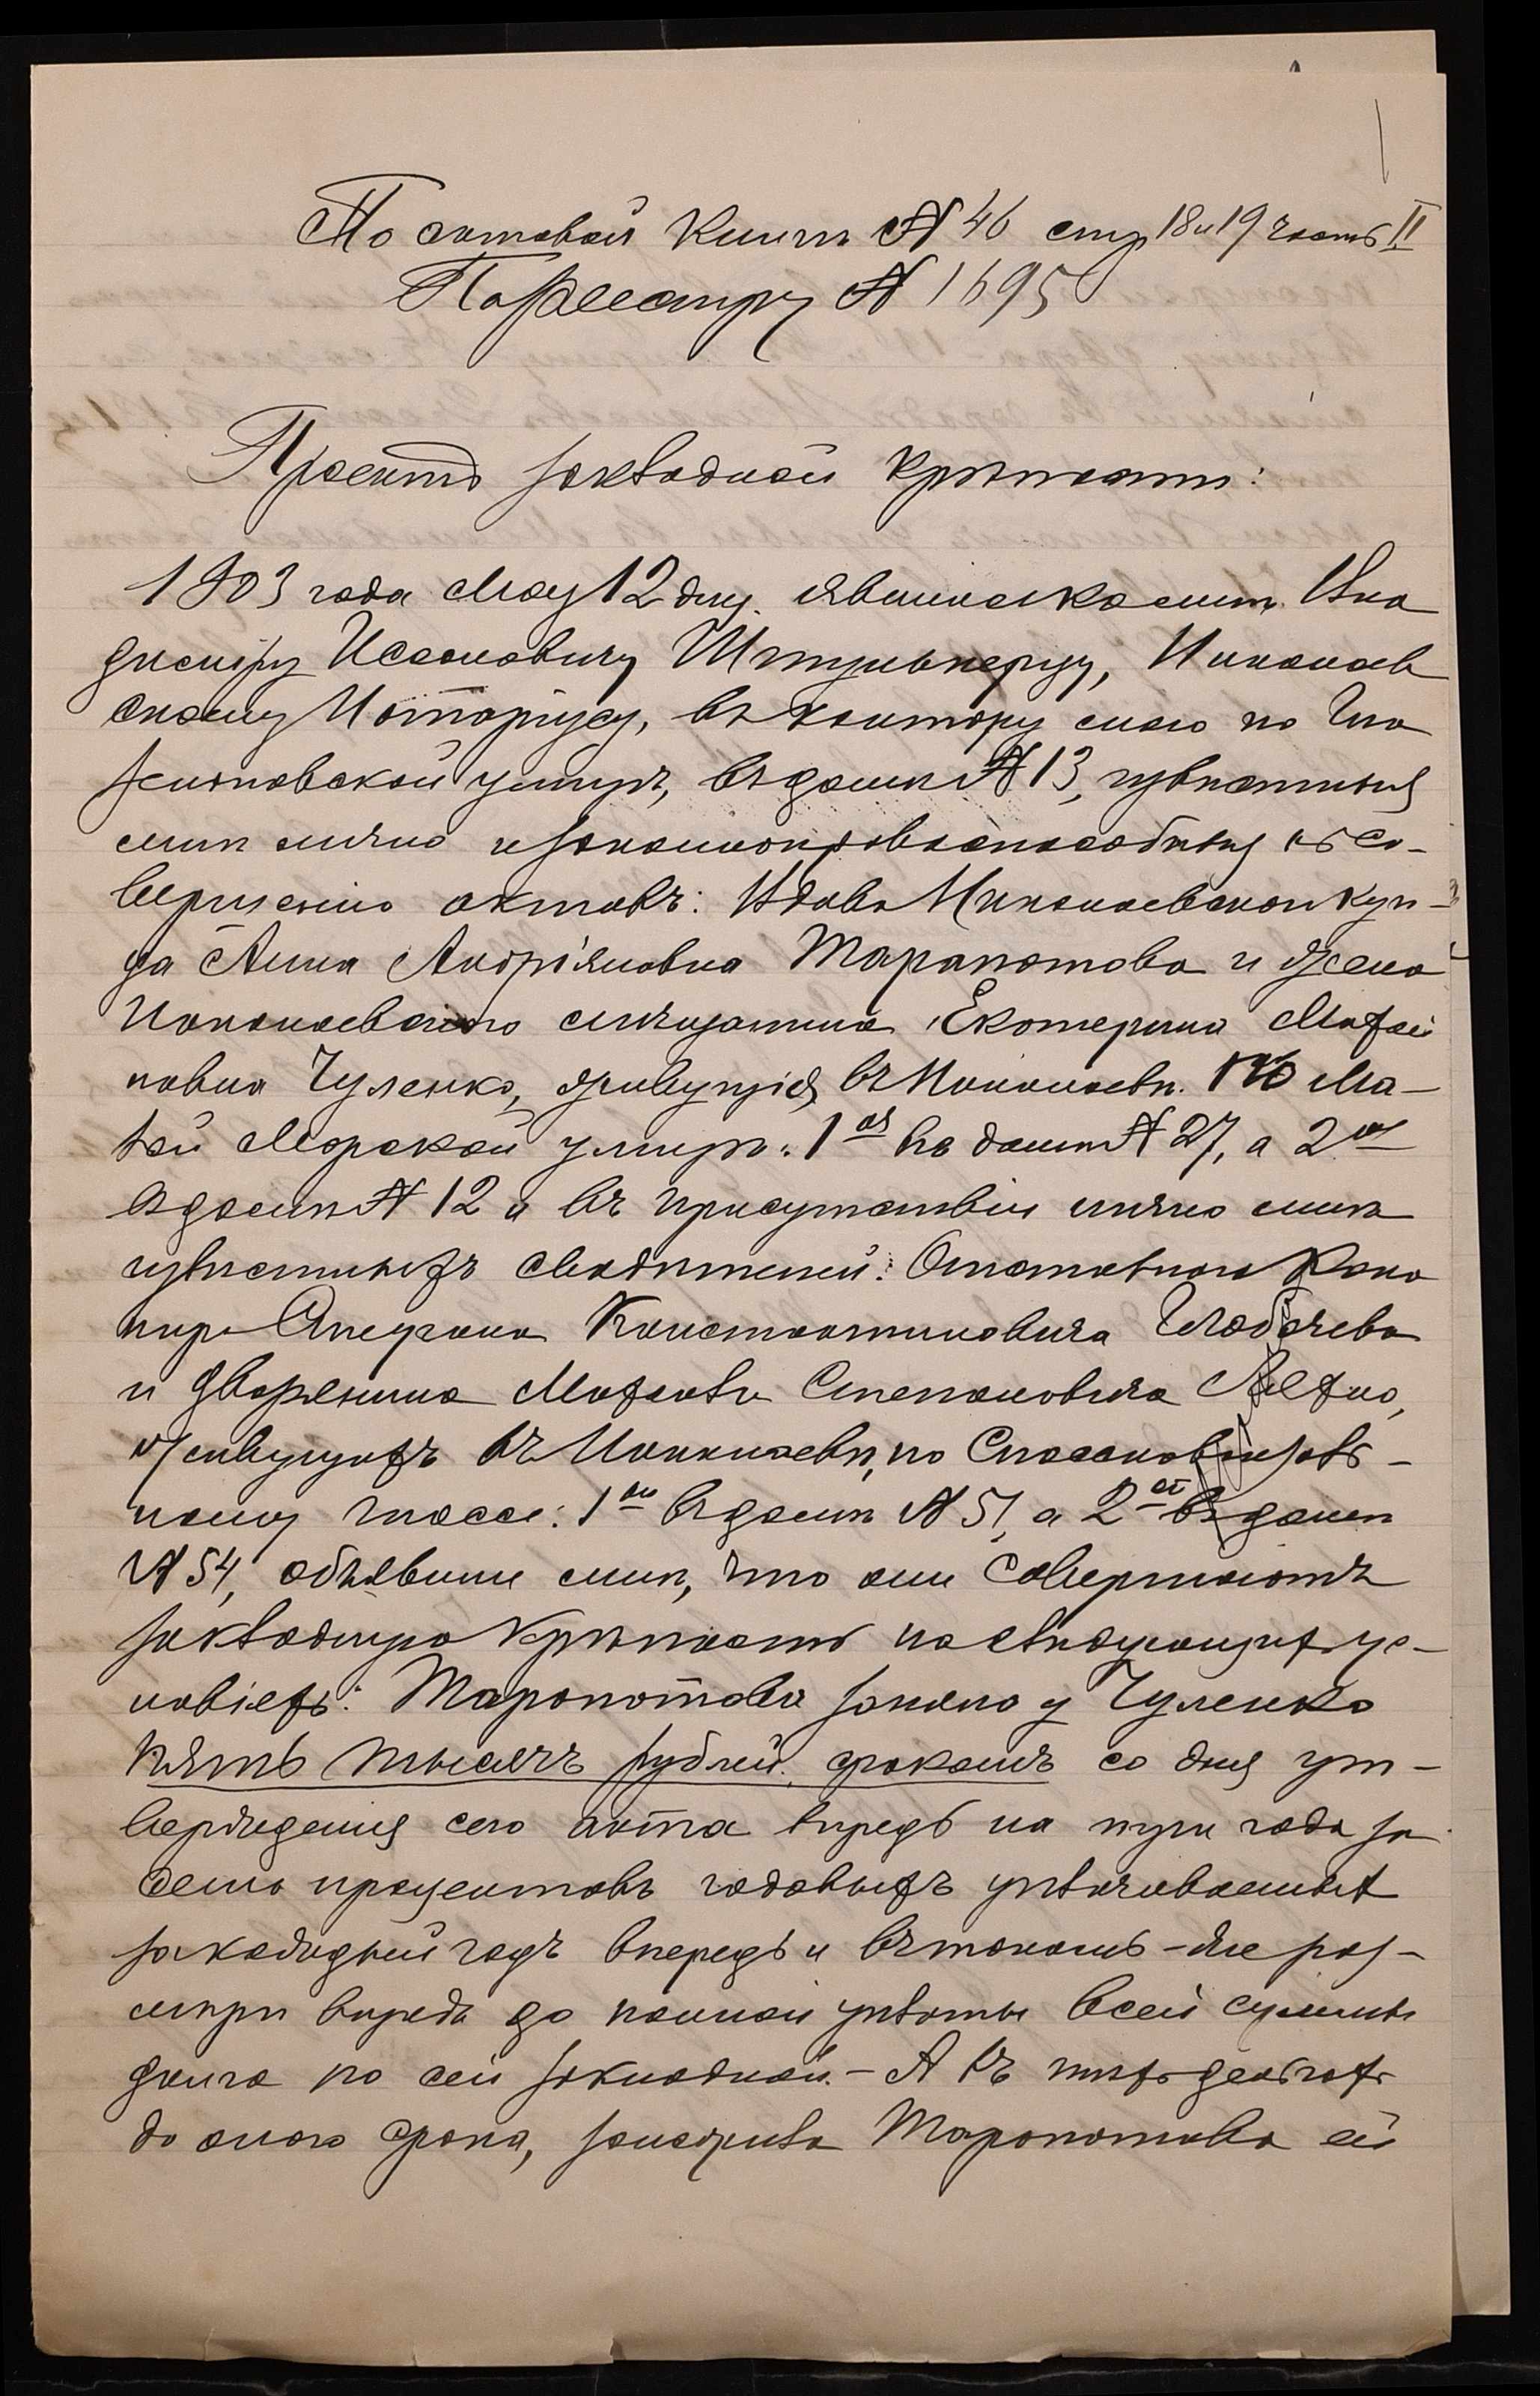 По актовой книгѣ № 46 стр 18 и 19 часть II
По реестру № 1695
Проектъ закладной крѣпости:
1903 года Мая 12 дня. явились ко мнѣ Вла
диміру Исааковичу Штульперцу, Николаев
скому Нотаріусу, въ контору мою по Гла
зенаповской улицѣ, въ домѣ № 13, извѣстныя
мнѣ лично и законноправоспособныя къ со-
вершенію актовъ: Вдова Николаевскаго куп-
ца Анна Андріяновна Тарапатова и жена
Николаевскаго мѣщанина Екатерина Михай
ловна Чуленко, живущія въ Николаевѣ по Ма-
лой Морской улицѣ: 1ая въ домѣ № 27, а 2ая
въ домѣ № 12 и въ присутствіи лично мнѣ
извѣстныхъ свидѣтелей: Отставного Кано
нира Константиновича
и дворянина Михаила Степановича
живущихъ въ Николаевѣ, по
ному шоссе: 1ый въ домѣ № 51, а 2ой въ домѣ
№ 54, объявили мнѣ, что они совершаютъ
закладную крѣпость на слѣдующихъ ус-
ловіяхъ: Тарапатова заняла у Чуленко
пять тысячъ рублей срокомъ со дня ут-
вержденія сего акта впредь на три года за
семь процентовъ годовыхъ уплачиваемыхъ
за каждый годъ впередъ и въ такомъ-же раз-
мѣрѣ впредь до полной уплаты всей суммы
долга по сей закладной. - А въ тѣхъ деньгахъ
до онаго срока, заложила Тарапатова ей